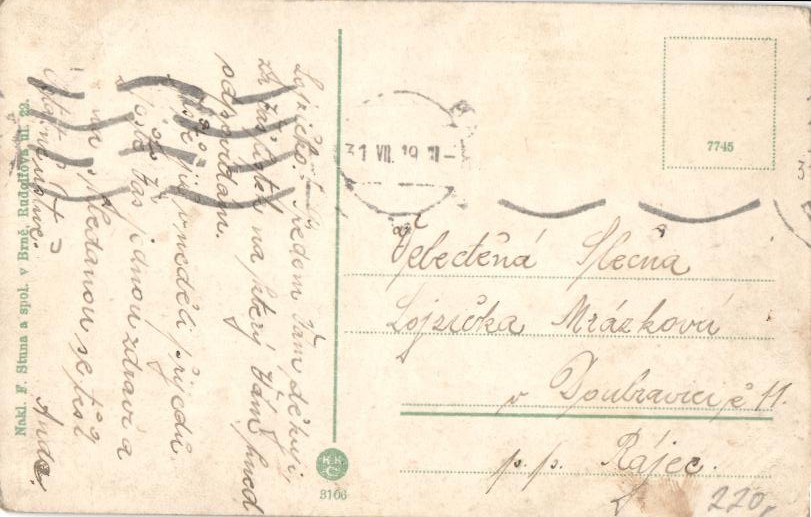 Lojzičko! Předem Vám děkuji
za Váš lístek na který Vám hned
odpovídám.
v neděli přijedu
Vás jednou zdraví a
na shledanou se těší
Anda.
31 VII. 19
7745
Velectěná Slečna
Lojzička Mrázková
v Doubravici č 11.
p. p. Rájec.
220,
K.K.
Č
3106
Nakl. F. Stuna a spol. v Brně, Rudolfova ul. 23.